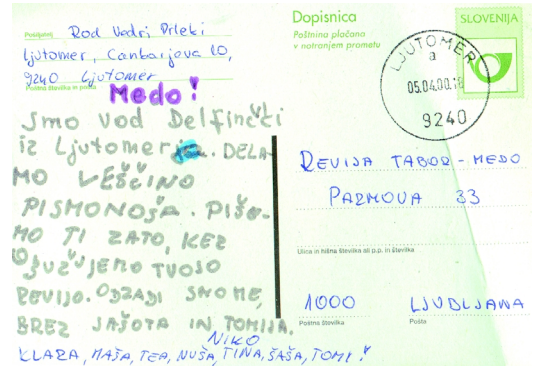 Pošiljatelj
Rod Vedri Prleki
Ljutomer, Cankarjeva 10,
9240 Ljutomer
Poštna številka in pošta
Medo!
Smo vod Delfinčki
iz Ljutomerja. DELA-
MO VEŠČINO
PISMONOŠA. PIŠE-
MO TI ZATO, KER
OBUŽUJEMO TVOJO
REVIJO. ODZADI SMO ME,
BREZ JAŠOTA IN TOMIJA.
NIKO
KLARA, MAŠA, TEA, NUŠA, TINA, ŠAŠA, TOMI!
Dopisnica
Poštnina plačana
v notranjem prometu
SLOVENIJA
LJUTOMER
a
05.04.00.18
9240
REVIJA TABOR - MEDO
PARMOVA 33
Ulica in hišna številka ali p.p. in številka
1000 LJUBLJANA
Poštna številka Pošta